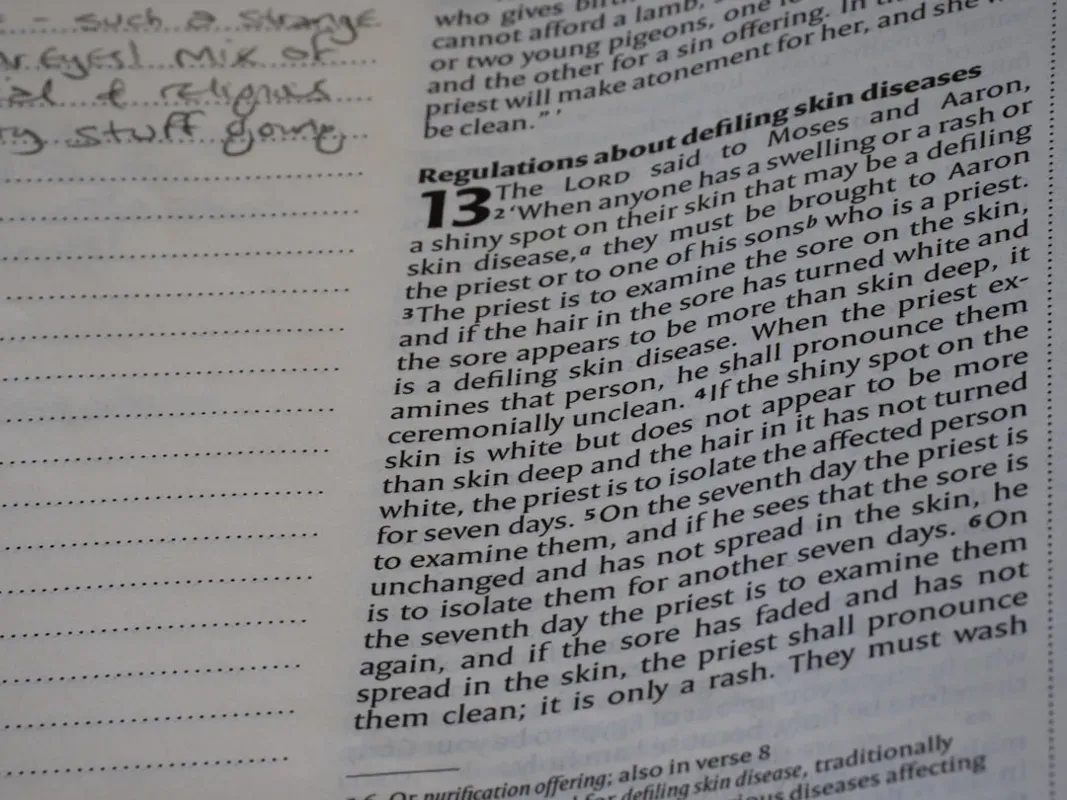 - such a strange
r eyes! mix of
& religious
stuff going
who gives
cannot afford a lamb,
or two young pigeons, one
and the other for a sin offering. In
priest will make atonement for her, and she
be clean.” ’
Regulations about defiling skin diseases
13 The LORD said to Moses and Aaron,
2 ‘When anyone has a swelling or a rash or
a shiny spot on their skin that may be a defiling
skin disease,a they must be brought to Aaron
the priest or to one of his sonsb who is a priest.
3 The priest is to examine the sore on the skin,
and if the hair in the sore has turned white and
the sore appears to be more than skin deep, it
is a defiling skin disease. When the priest ex-
amines that person, he shall pronounce them
ceremonially unclean. 4 If the shiny spot on the
skin is white but does not appear to be more
than skin deep and the hair in it has not turned
white, the priest is to isolate the affected person
for seven days. 5 On the seventh day the priest is
to examine them, and if he sees that the sore is
unchanged and has not spread in the skin, he
is to isolate them for another seven days. 6 On
the seventh day the priest is to examine them
again, and if the sore has faded and has not
spread in the skin, the priest shall pronounce
them clean; it is only a rash. They must wash
Or purification offering; also in verse 8
for defiling skin disease, traditionally
diseases affecting